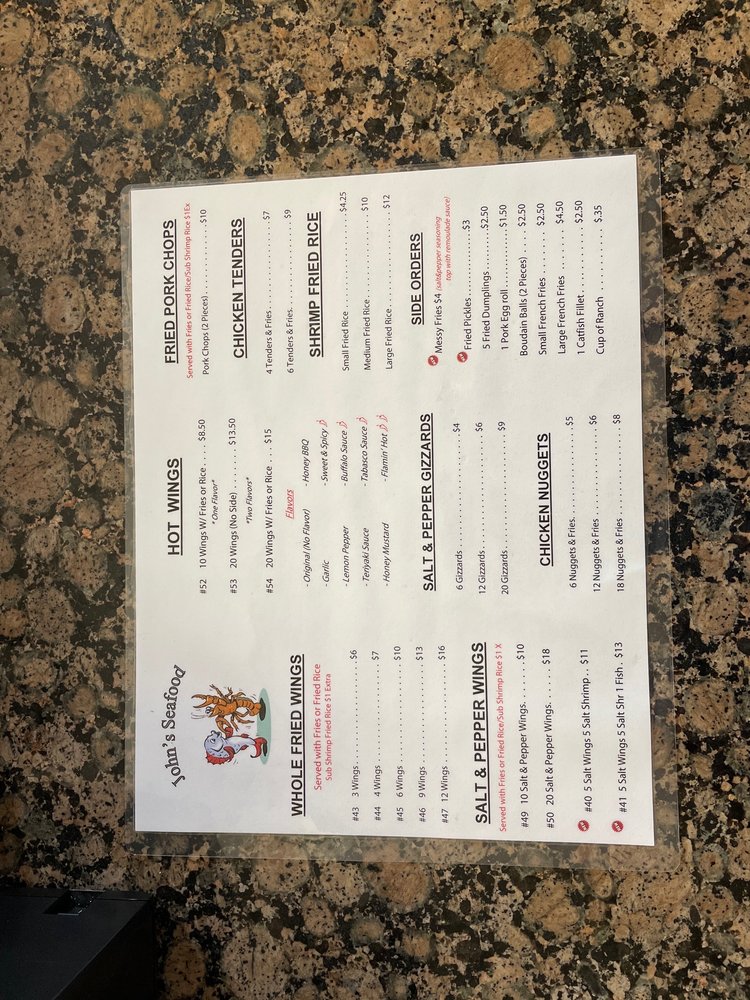 John's Seafood
WHOLE FRIED WINGS
Served with Fries or Fried Rice
Sub Shrimp Fried Rice $1 Extra
#43 3 Wings. . . . . . . . . . . . . . . . . . . . . . $6
#44 4 Wings . . . . . . . . . . . . . . . . . . . . . $7
#45 6 Wings . . . . . . . . . . . . . . . . . . . . $10
#46 9 Wings . . . . . . . . . . . . . . . . . . . . $13
#47 12 Wings . . . . . . . . . . . . . . . . . . . $16
SALT & PEPPER WINGS
Served with Fries or Fried Rice/Sub Shrimp Rice $1 X
#49 10 Salt & Pepper Wings. . . . . . . . . $10
#50 20 Salt & Pepper Wings. . . . . . . . . $18
#40 5 Salt Wings 5 Salt Shrimp . . $11
#41 5 Salt Wings 5 Salt Shr 1 Fish . $13
HOT WINGS
#52 10 Wings W/ Fries or Rice. . . . $8.50
*One Flavor*
#53 20 Wings (No Side) . . . . . . . . $13.50
*Two Flavors*
#54 20 Wings W/ Fries or Rice . . . . $15
Flavors
- Original (No Flavor) - Honey BBQ
- Garlic - Sweet & Spicy
- Lemon Pepper - Buffalo Sauce
- Teriyaki Sauce - Tabasco Sauce
- Honey Mustard - Flamin' Hot
SALT & PEPPER GIZZARDS
6 Gizzards . . . . . . . . . . . . . . . . . . . . . . . $4
12 Gizzards. . . . . . . . . . . . . . . . . . . . . . $6
20 Gizzards. . . . . . . . . . . . . . . . . . . . . . $9
CHICKEN NUGGETS
6 Nuggets & Fries. . . . . . . . . . . . . . . . . $5
12 Nuggets & Fries . . . . . . . . . . . . . . . $6
18 Nuggets & Fries . . . . . . . . . . . . . . . $8
FRIED PORK CHOPS
Served with Fries or Fried Rice/Sub Shrimp Rice $1Ex
Pork Chops (2 Pieces) . . . . . . . . . . . . $10
CHICKEN TENDERS
4 Tenders & Fries . . . . . . . . . . . . . . . . . $7
6 Tenders & Fries. . . . . . . . . . . . . . . . . $9
SHRIMP FRIED RICE
Small Fried Rice . . . . . . . . . . . . . . . . $4.25
Medium Fried Rice . . . . . . . . . . . . . . . $10
Large Fried Rice. . . . . . . . . . . . . . . . . $12
SIDE ORDERS
Messy Fries $4 (salt&pepper seasoning
top with remoulade sauce)
Fried Pickles. . . . . . . . . . . . . . . . . . . . . $3
5 Fried Dumplings . . . . . . . . . . . $2.50
1 Pork Egg roll . . . . . . . . . . . . . . $1.50
Boudain Balls (2 Pieces) . . . . . . $2.50
Small French Fries . . . . . . . . . . . $2.50
Large French Fries . . . . . . . . . . . $4.50
1 Catfish Fillet . . . . . . . . . . . . . . . $2.50
Cup of Ranch . . . . . . . . . . . . . . . $.35